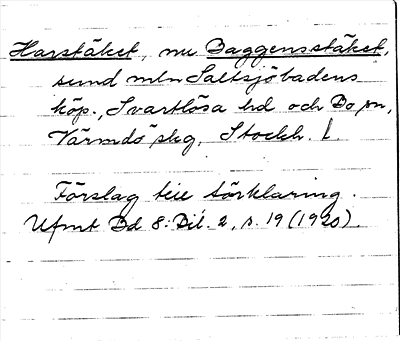 Harstäket, nu Baggensstäket,
sund mln Saltsjöbadens
köp., Svartlösa hd och Bo sn,
Värmdö skg, Stockh. l.
Förslag till törklaring.
Ufmt Bd 8. Bil. 2, s. 19 (1920).